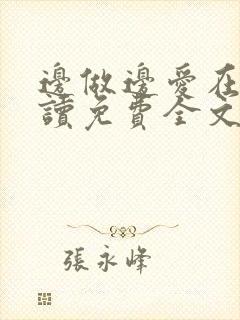 邊做邊愛在
讀免費全文
張永峰